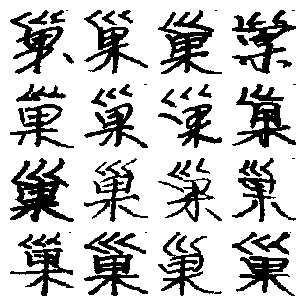 巢巢巢巢
巢巢巢巢
巢巢巢巢
巢巢巢巢